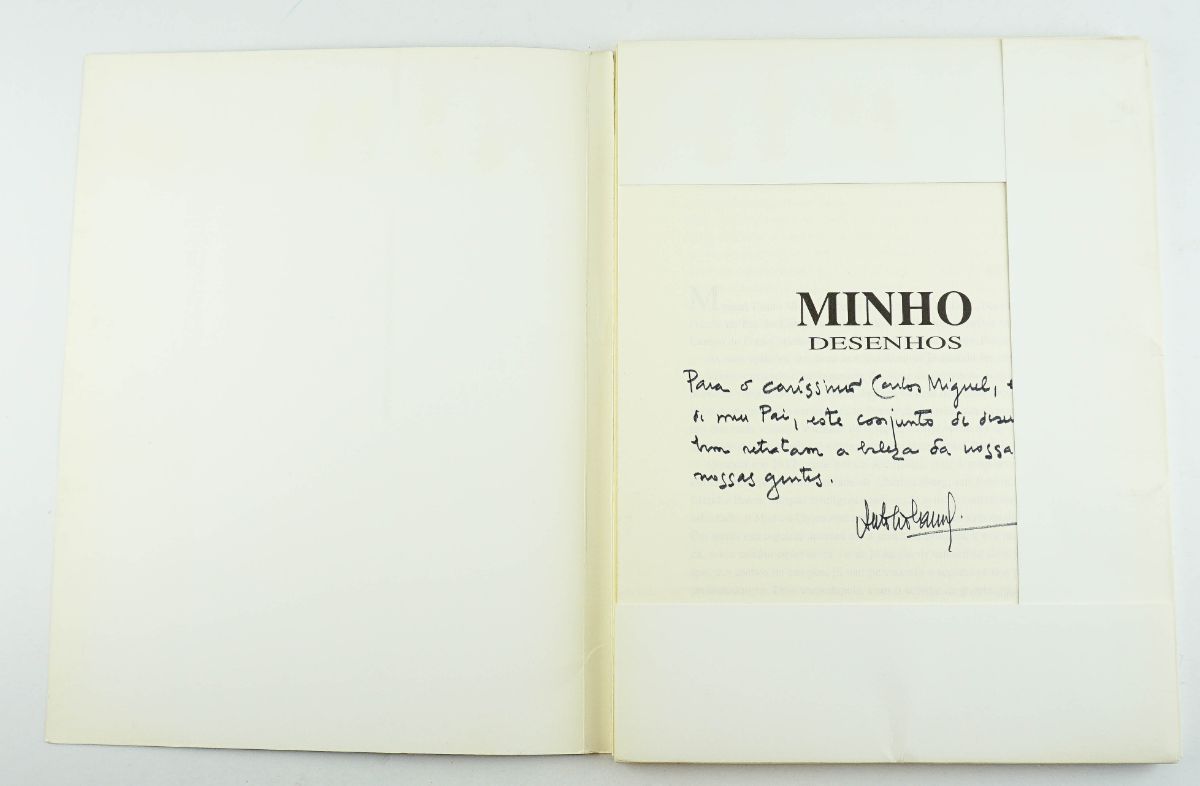 MINHO
DESENHOS
Para o caríssimo Carlos Miguel,
de meu Pai, este conjunto de dese
tam retratam a beleza da nossa
nossas gentes.